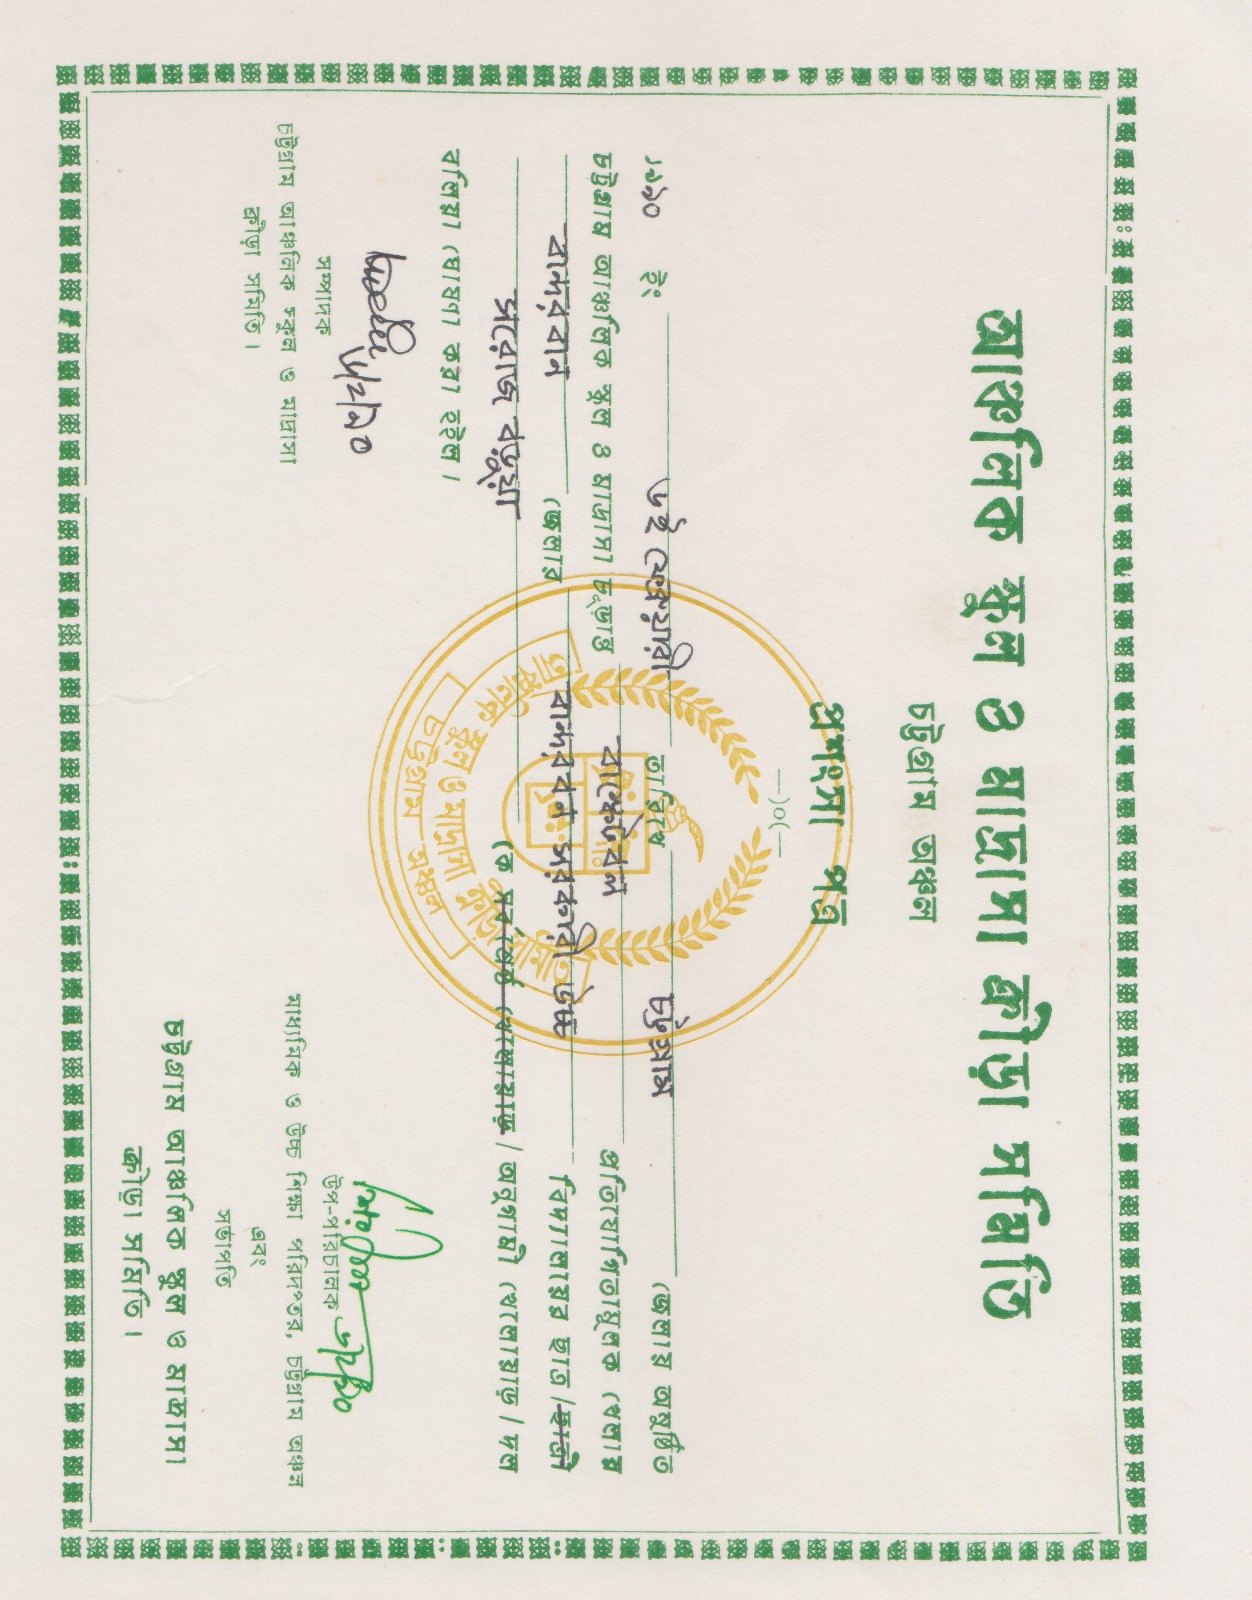 আঞ্চলিক স্কুল ও মাদ্রাসা ক্রীড়া সমিতি
চট্টগ্রাম অঞ্চল
প্রশংসা পত্র
—)o(—
১৯৯০ ইং ৬ই ফেব্রুয়ারী তারিখে চট্টগ্রাম জেলায় অনুষ্ঠিত
চট্টগ্রাম আঞ্চলিক স্কুল ও মাদ্রাসা চূড়ান্ত বাস্কেটবল প্রতিযোগিতামূলক খেলায়
বান্দরবান জেলার বান্দরবন সরকারী উচ্চ বিদ্যালয়ের ছাত্র/ছাত্রী
সরোজ বড়ুয়া কে সর্বশ্রেষ্ঠ খেলোয়াড়/অনুগামী খেলোয়াড়/দল
বলিয়া ঘোষণা করা হইল।
আঞ্চলিক স্কুল ও মাদ্রাসা ক্রীড়া সমিতি
চট্টগ্রাম অঞ্চল
৬/২/৯০
সম্পাদক
চট্টগ্রাম আঞ্চলিক স্কুল ও মাদ্রাসা
ক্রীড়া সমিতি।
৬/২/৯০
উপ-পরিচালক
মাধ্যমিক ও উচ্চ শিক্ষা পরিদপ্তর, চট্টগ্রাম অঞ্চল
এবং
সভাপতি
চট্টগ্রাম আঞ্চলিক স্কুল ও মাদ্রাসা
ক্রীড়া সমিতি।